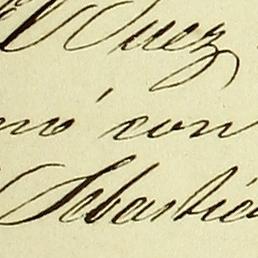 el Juez
mó con
Sebastiá